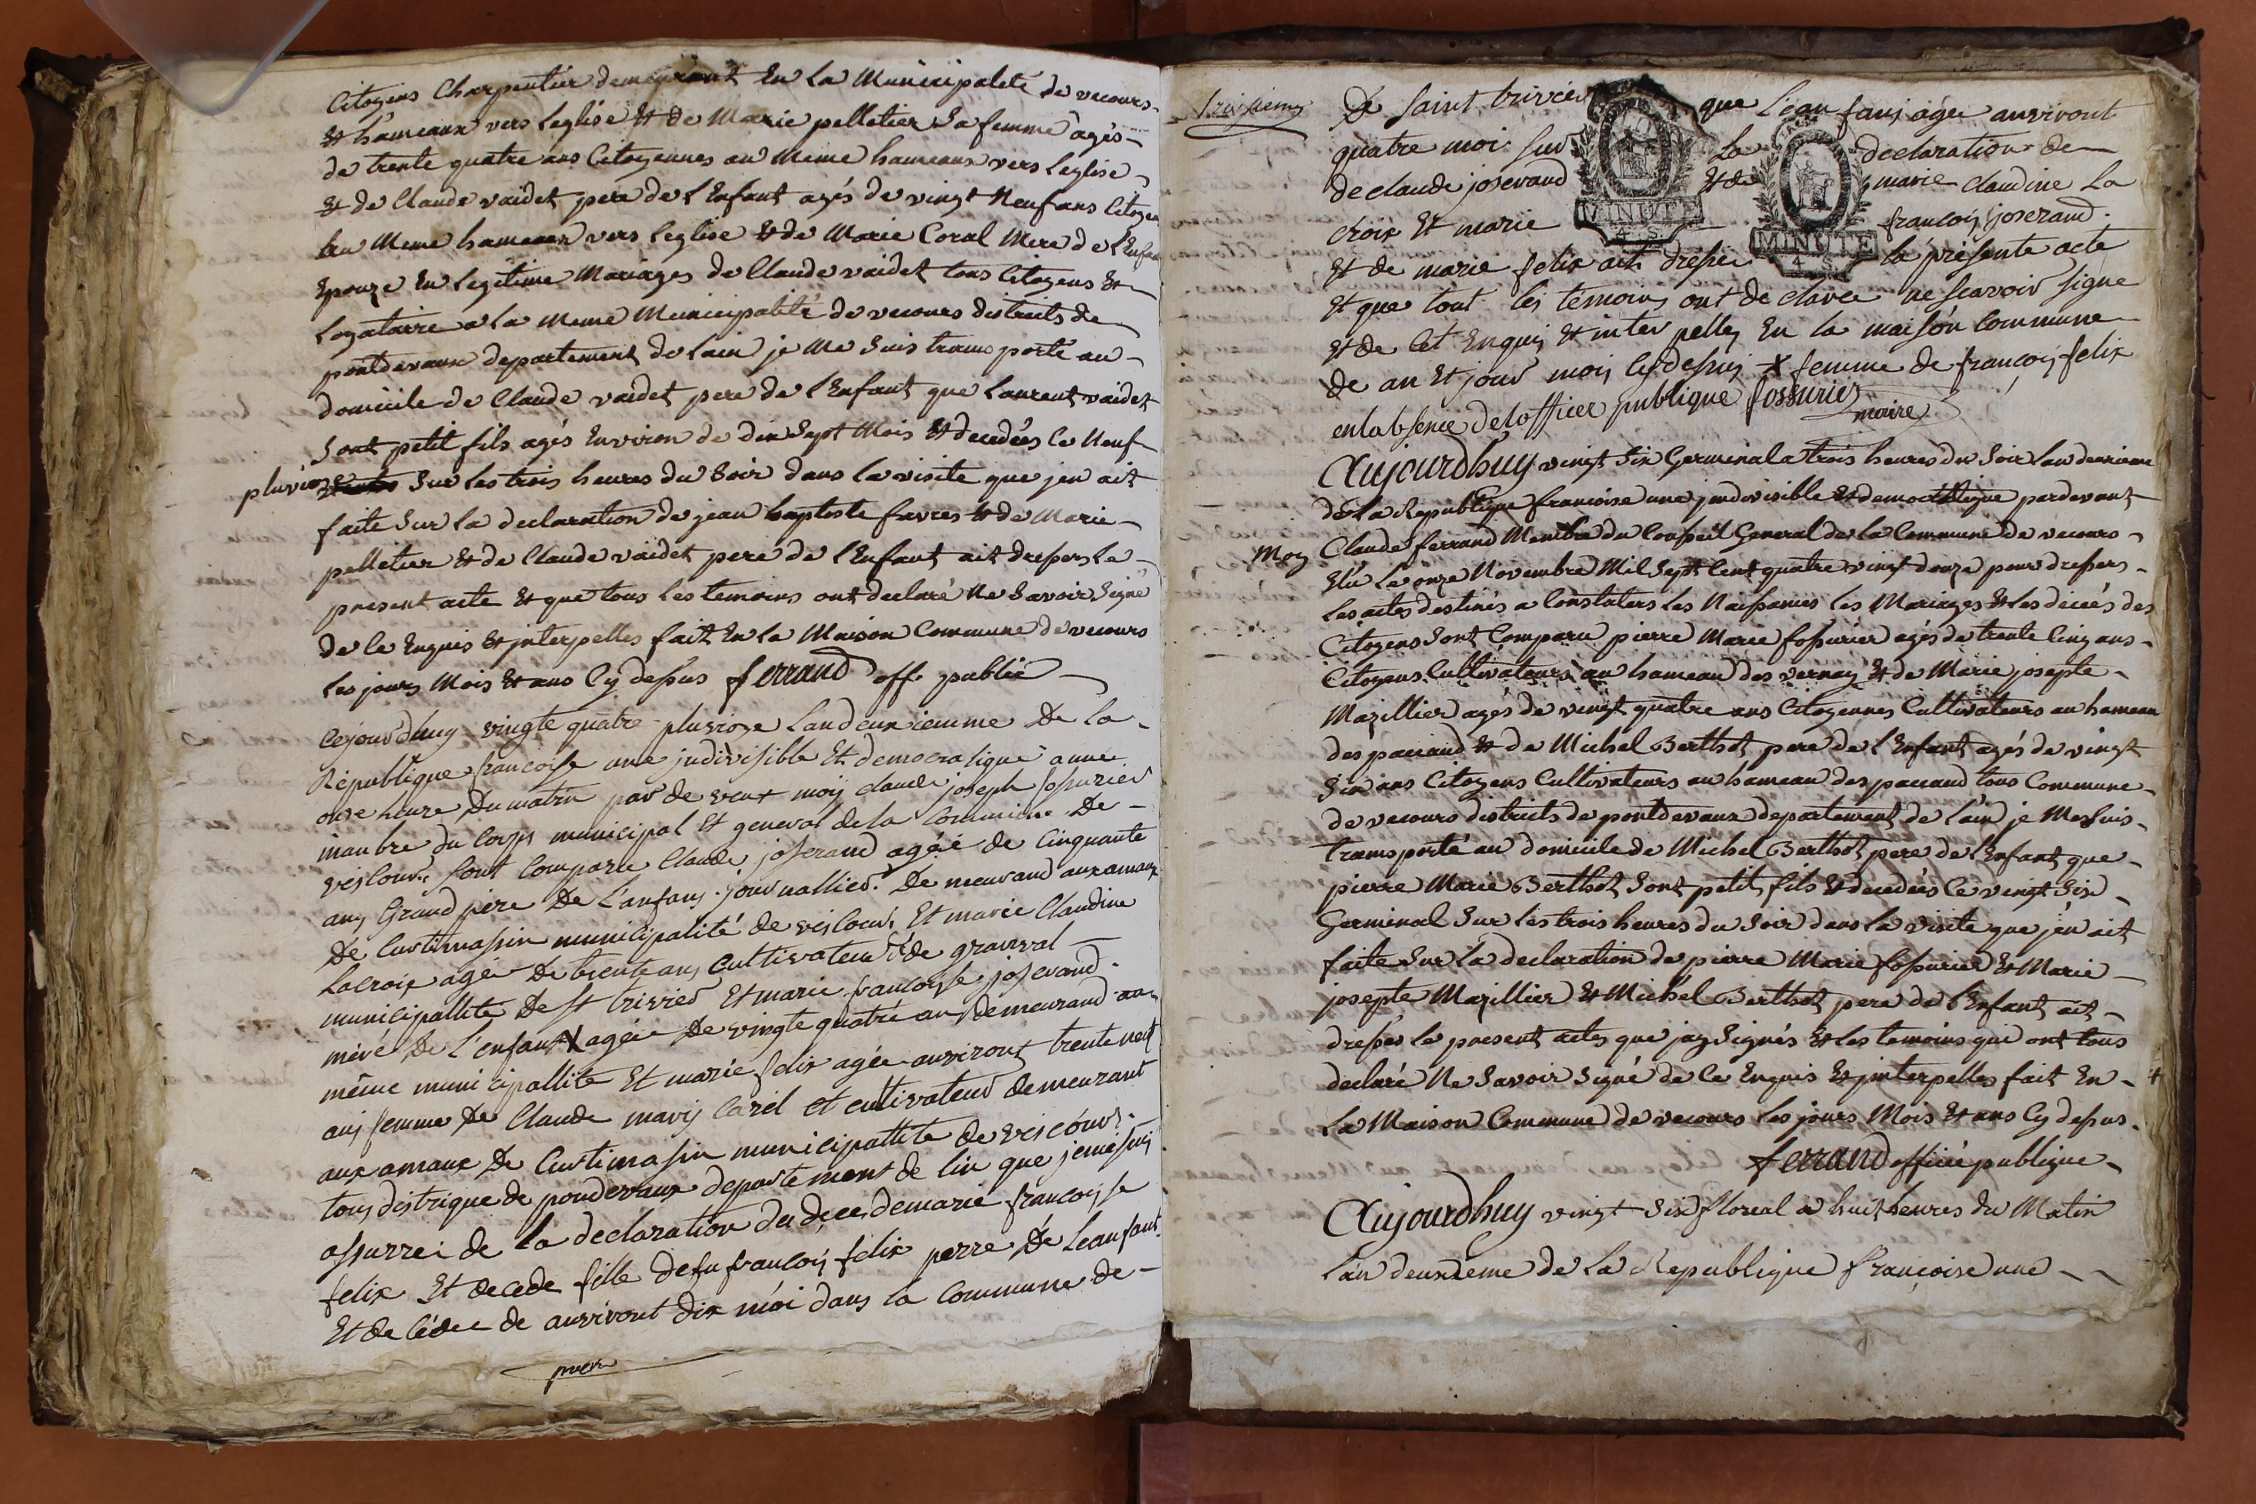 Citoyens Charpentier demeurant En La Municipalité de vecours
Et hameaux vers leglise Et de Marie pelletier Sa femme agés
de trente quatre ans Citoyennes au Meme hameaux vers Leglise
Et de Claude vaidet pere de l'Enfant agés de vingt Neuf ans Citoyen
au Meme hameaux vers leglise Et de Marie Coral Mere de l'Enfan
Epouze En Legitime Mariages de Claude vaidet tous Citoyens Et
Logataire a La Meme Municipalité de vecours distraits de
pontdevaux departement de Lain je Me Suis transporté au
domicile de Claude vaidet pere de l'Enfant que Laurent vaidet
Sont petit fils agés Environ de dix Sept Mois Et decedées Ce Neuf
pluvioze Sur Les trois heures du Soir dans La visite que jen ait
faite Sur La declaration de jean baptiste favres Et de Marie
pelletier Et de Claude vaidet pere de l'Enfant ait dressers Le
present acte Et que tous Les temoins ont declaré Ne Savoir Signé
de Ce Enquis Et jnterpelles fait En La Maison Commune de vecours
Les jours Mois Et ans Cy dessus ferrand off. public
Cejourdhuy vingte quatre pluvioze Landeuxiemme De La
Republique francoise une judivisible Et democratique a une
onse heure Du matin par de vent moij claude joseph fossurier
manbre du Corps municipal Et general de la Commune De
vescour. Sont Comparu Claude josserand agée de Cinquante
ans Grand pere De L'anfans. journallier. De meurand aux amaux
De Curtimassin municipalité de vescour Et marie Claudine
Lacroix agée De trente ans Cultivateur de granval
municipallite De St trivier Et marie francoisse josserand
mere De L'enfant X agée De vingte quatre an demeurand au
même municipallite Et marie felix agée anviront trente neuf
ans femme De Claude maris Carel et cultivateur demeurant
aux amaux De Curtimassin municipallite de vescour.
tous distrique de pondevaux departement de lin que jemesuis
assurrei de La declaration du deces demarie francoisse
felix Et decede fille defu francois felix perre De Leanfant.
Et de Cédee de anviront dix moi dans la Commune de
Troisiemes
De Saint trivier que Leanfans agée anviront
quatre moi Sur La declaration de
de claude joserand Et de marie claudine La
croix Et marie francois joserand.
MINUTE
4. S.
MINUTE
4. S.
Et de marie felix ait dressée la présente acte
Et que tout les temoins ont de claree ne scavoir signe
Et de Cet Enquis Et inter pelles En la maison Commune
De an Et jour mois Cy dessus X femme de francois felix
enlabsence delofficer publique fossurier
maire
Aujourdhuy vingt Six Germinal a trois heures du Soir Lan deuxieme
de La Republique francoise une jndivisible Et democratique pardevant
Moy Claude ferrand Membre du Conseil General de La Commune de vecours
Elu Le onze Novembre Mil Sept Cent quatre vingt douze pour dressers
Les actes destinés a Constaters Les Naissances Les Mariages Et Les décés des
Citoyens Sont Comparu pierre Marie fossurier agés de trente Cinq ans
Citoyens Cultivateurs au hameau des vernay Et de Marie josepte
Mazillier agés de vingt quatre ans Citoyennes Cultivateurs au hameau
des paccaud Et de Michel Berthot pere de l'Enfant agés de vingt
Six ans Citoyens Cultivateurs au hameau des paccaud tous Commune
de vecours distraits de pontdevaux departement de Lain je Me Suis
transporté au domicile de Michel Berthot pere de l'Enfant que
pierre Marie Berthot Sont petit fils Et decedées Ce vingt Six
Germinal Sur Les trois heures du Soir dans La visite que jen ait
faite Sur La declaration de pierre Marie fossurier Et Marie
josepte Mazillier Et Michel Berthot pere de l'Enfant ait
dressés Le present actes que jay Signés Et Les temoins qui ont tous
declaré Ne Savoir Signé de Ce Enquis Et jnterpelles fait En
La Maison Commune de vecours Les jours Mois Et ans Cy dessus.
ferrand officié publique
Aujourdhuy vingt Six floreal a huit heures du Matin
Lan deuxieme de La Republique francoise une